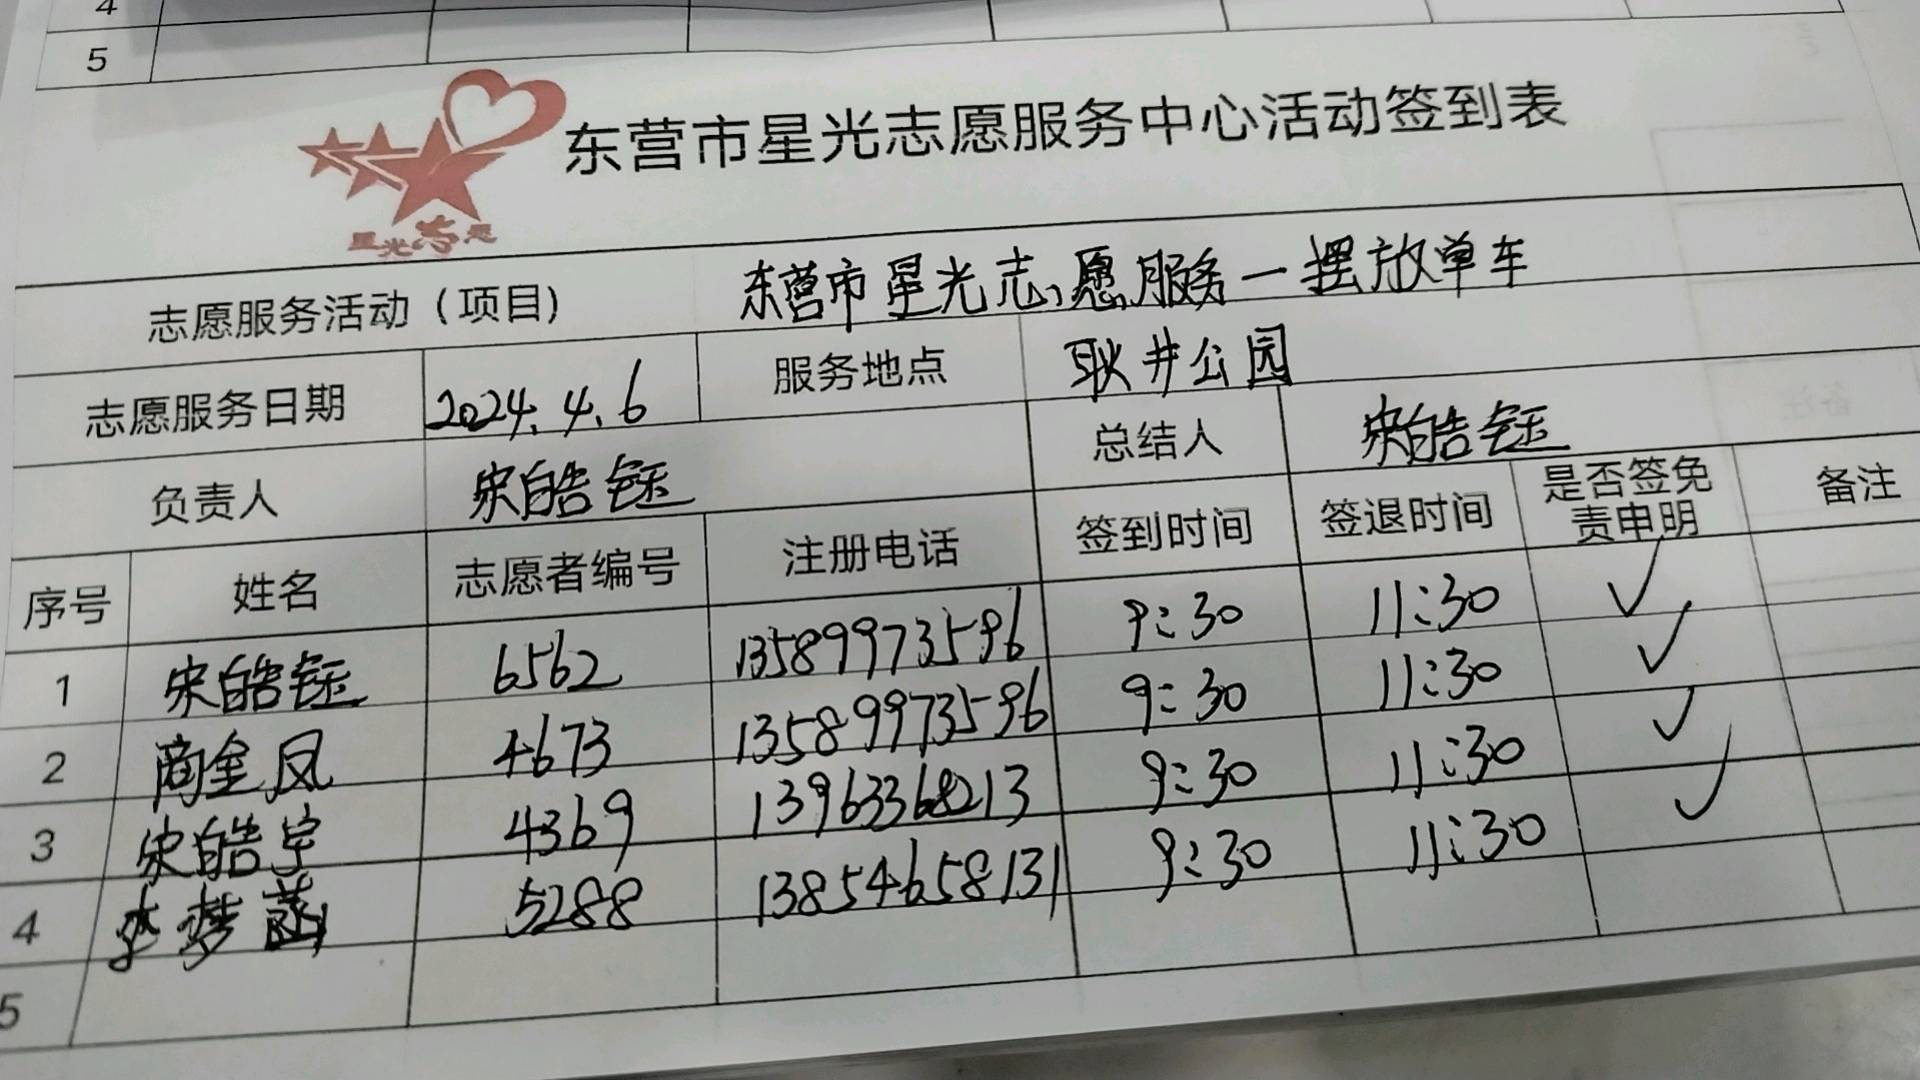 4
5
星光志愿
东营市星光志愿服务中心活动签到表
志愿服务活动（项目） 东营市星光志愿服务一摆放单车
志愿服务日期 2024.4.6 服务地点 耿井公园
负责人 宋皓钰 总结人 宋皓钰
序号 姓名 志愿者编号 注册电话 签到时间 签退时间 是否签免责申明 备注
1 宋皓钰 6562 13589973596 9:30 11:30 ✓
2 商金凤 4673 13589973596 9:30 11:30 ✓
3 宋皓宇 4369 13963368213 9:30 11:30 ✓
4 李梦菡 5288 13854658131 9:30 11:30 ✓
5